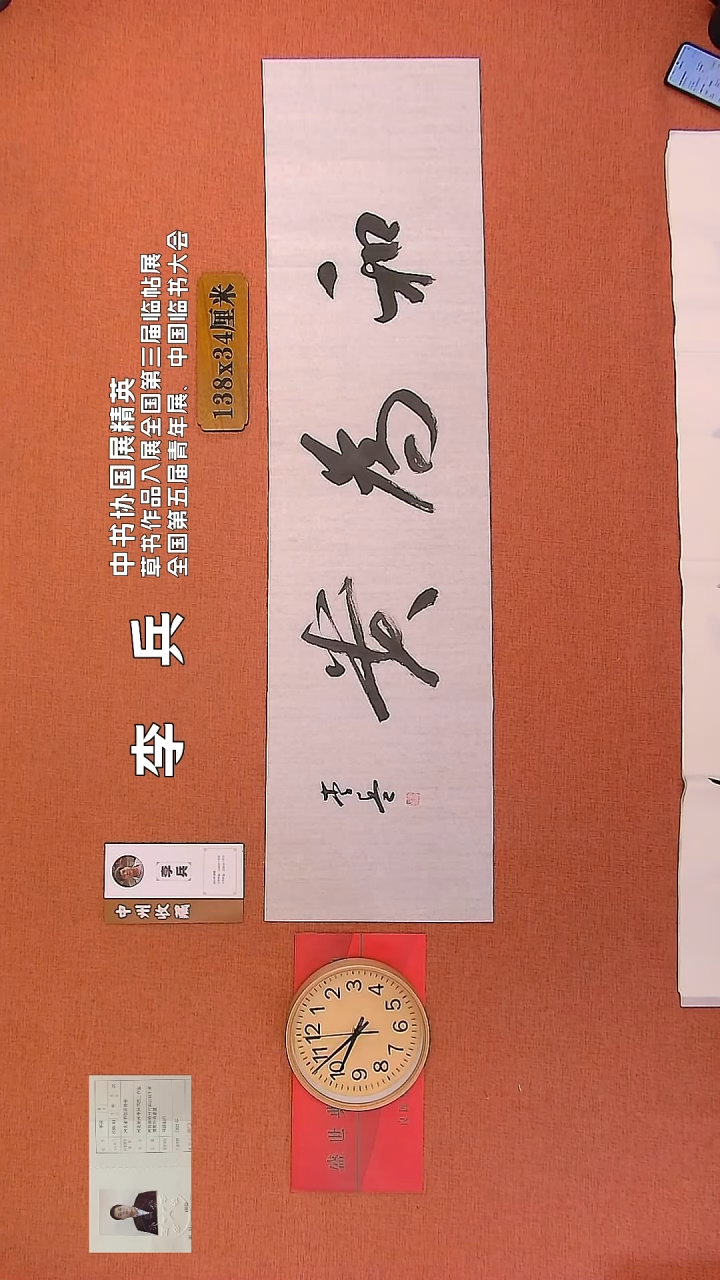 中书协国展精英
草书作品入展全国第三届临帖展
全国第五届青年展、中国临书大会
李 兵
138x34厘米
和為贵
李兵
李兵
中州收藏
12
1
2
3
4
5
6
7
8
9
10
11
盛世